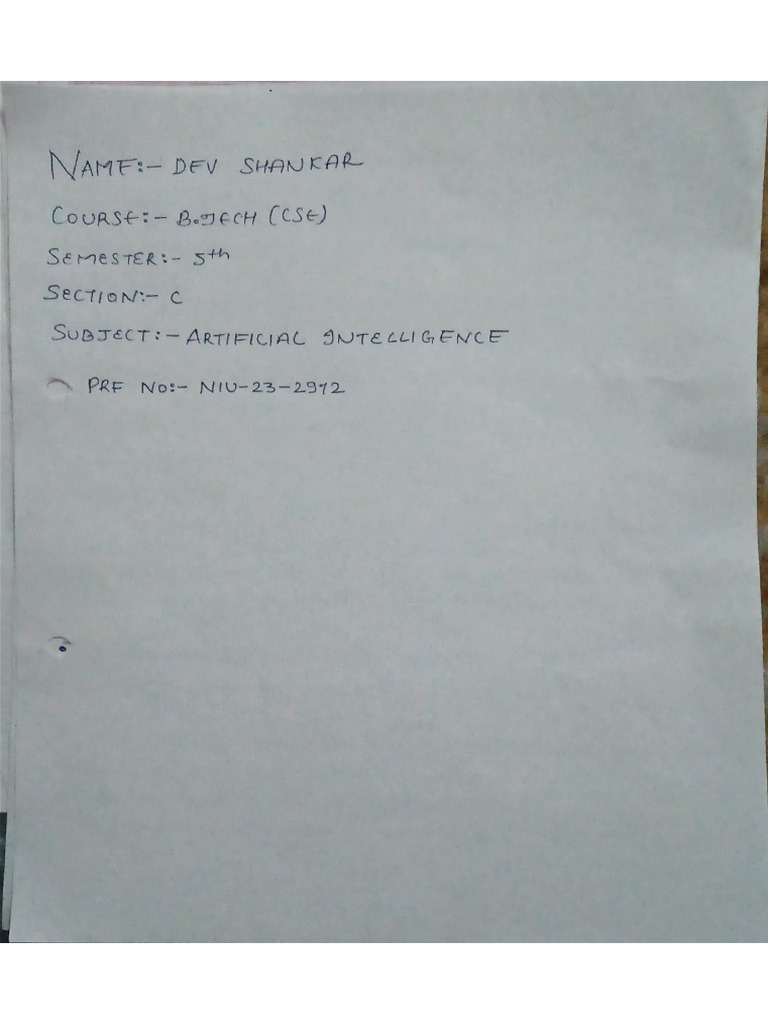 NAME:- DEV SHANKAR
COURSE:- B.TECH (CSE)
SEMESTER:- 5th
SECTION:- C
SUBJECT:- ARTIFICIAL INTELLIGENCE
PRF NO:- NIU-23-2912